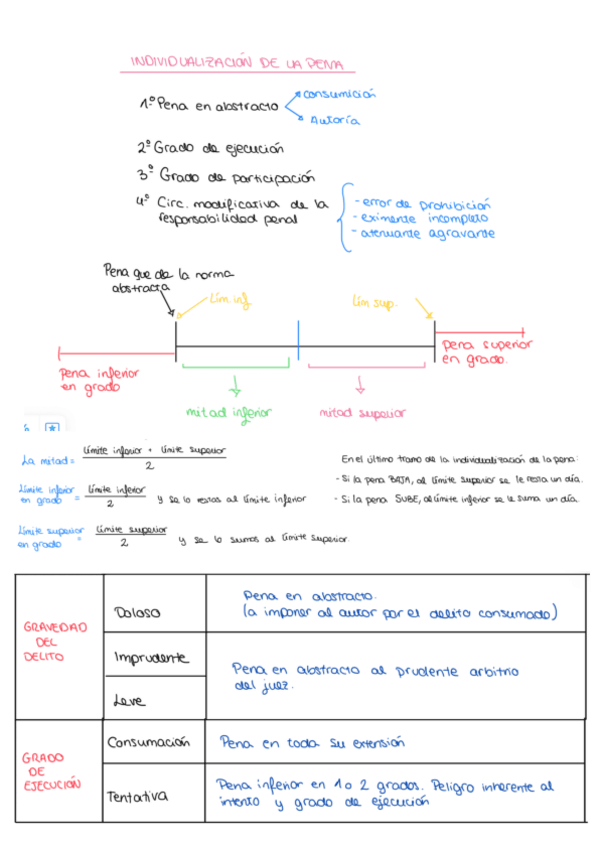 INDIVIDUALIZACIÓN DE LA PENA
1.º Pena en abstracto
consumición
Autoría
2º Grado de ejecución
3º Grado de participación
4º Circ. modificativa de la
responsabilidad penal
- error de prohibición
- eximente incompleto
- atenuante agravante
Pena que de la norma
abstracta
Lím. inf.
Lím sup.
Pena inferior
en grado
pena superior
en grado.
mitad inferior
mitad superior
La mitad =
límite inferior + límite superior
2
Límite inferior
en grado =
límite inferior
2
y se lo restas al límite inferior
Límite superior
en grado =
límite superior
2
y se lo sumas al límite superior.
En el último tramo de la individualización de la pena:
- Si la pena BAJA, al límite superior se le resta un día.
- Si la pena SUBE, al límite inferior se le suma un día.
GRAVEDAD
DEL
DELITO
Doloso
Pena en abstracto.
(a imponer al autor por el delito consumado)
Imprudente
Leve
Pena en abstracto al prudente arbitrio
del juez.
GRADO
DE
EJECUCIÓN
Consumación
Pena en toda su extensión
Tentativa
Pena inferior en 1 o 2 grados. Peligro inherente al
intento y grado de ejecución